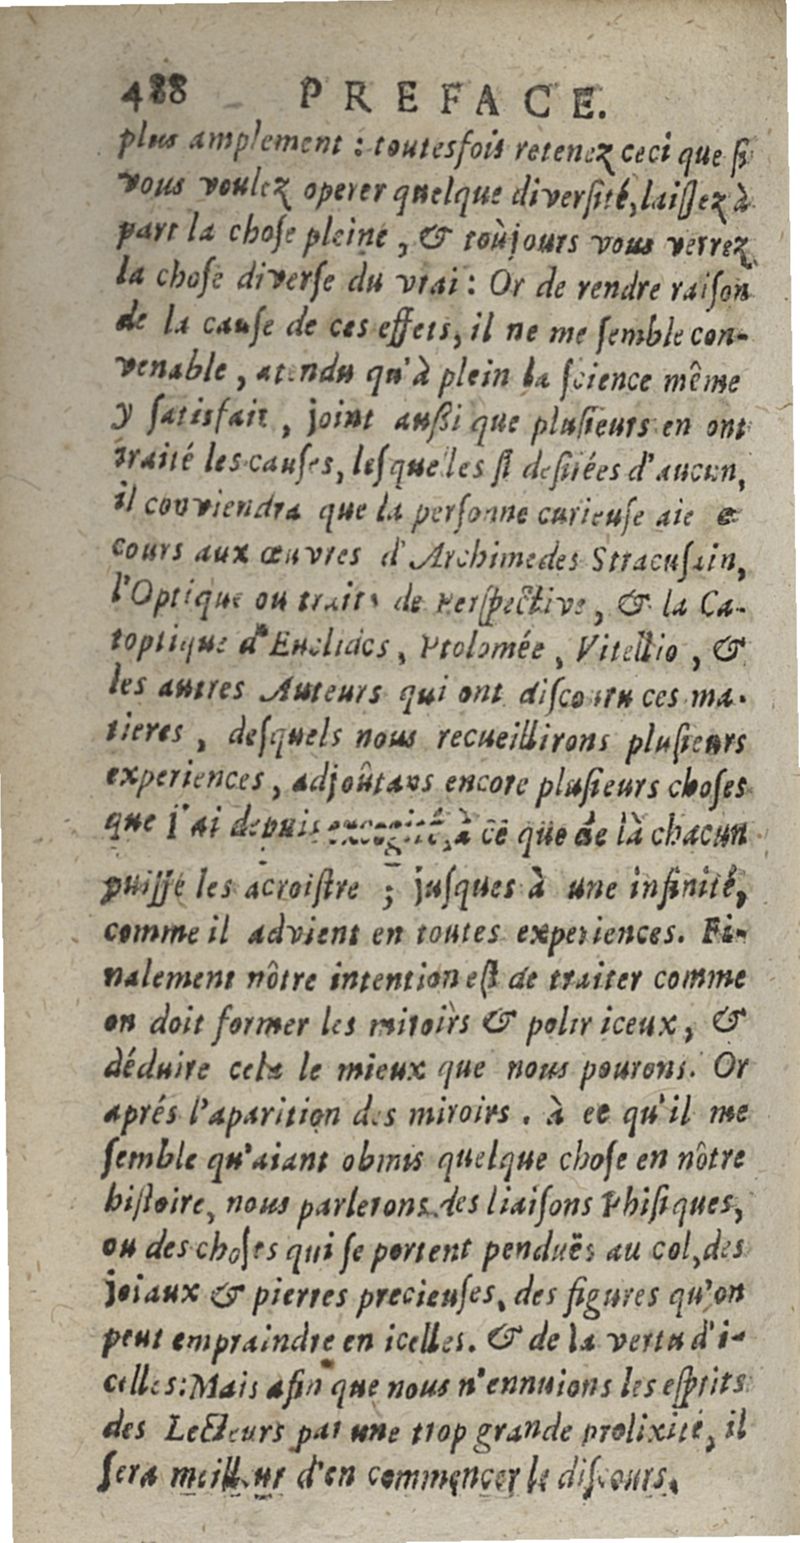 488 PREFACE.
plus amplement : toutesfois retenez ceci que ſi
vous voulez operer quelque diverſité, laiſſez à
part la choſe pleine, & toûjours vous verrez
la choſe diverſe du vrai : Or de rendre raiſon
de la cauſe de ces effets, il ne me ſemble con-
venable, atendu qu'à plein la ſcience même
y ſatisfait, joint auſſi que pluſieurs en ont
traité les cauſes, leſquelles ſi deſirées d'aucun,
il conviendra que la perſonne curieuſe aie
cours aux œuvres d'Archimedes Siracuſain,
l'Optique ou traité de Perſpective, & la Ca-
toptique d'Euclides, Ptolomée, Vitellio, &
les autres Auteurs qui ont diſcouru ces ma-
tieres, deſquels nous recueillirons pluſieurs
experiences, adjoûtans encore pluſieurs choſes
que j'ai depuis excogité, à ce que de là chacun
puiſſe les acroiſtre ; juſques à une infinité,
comme il advient en toutes experiences. Fi-
nalement nôtre intention eſt de traiter comme
on doit former les miroirs & polir iceux, &
déduire cela le mieux que nous pourons. Or
aprés l'aparition des miroirs. à ce qu'il me
ſemble qu'aiant obmis quelque choſe en nôtre
hiſtoire, nous parlerons des liaiſons Phiſiques,
ou des choſes qui ſe portent penduës au col, des
joiaux & pierres precieuſes, des figures qu'on
peut empraindre en icelles. & de la vertu d'i-
celles: Mais afin que nous n'ennuions les eſprits
des Lecteurs par une trop grande prolixité, il
ſera meilleur d'en commencer le diſcours.